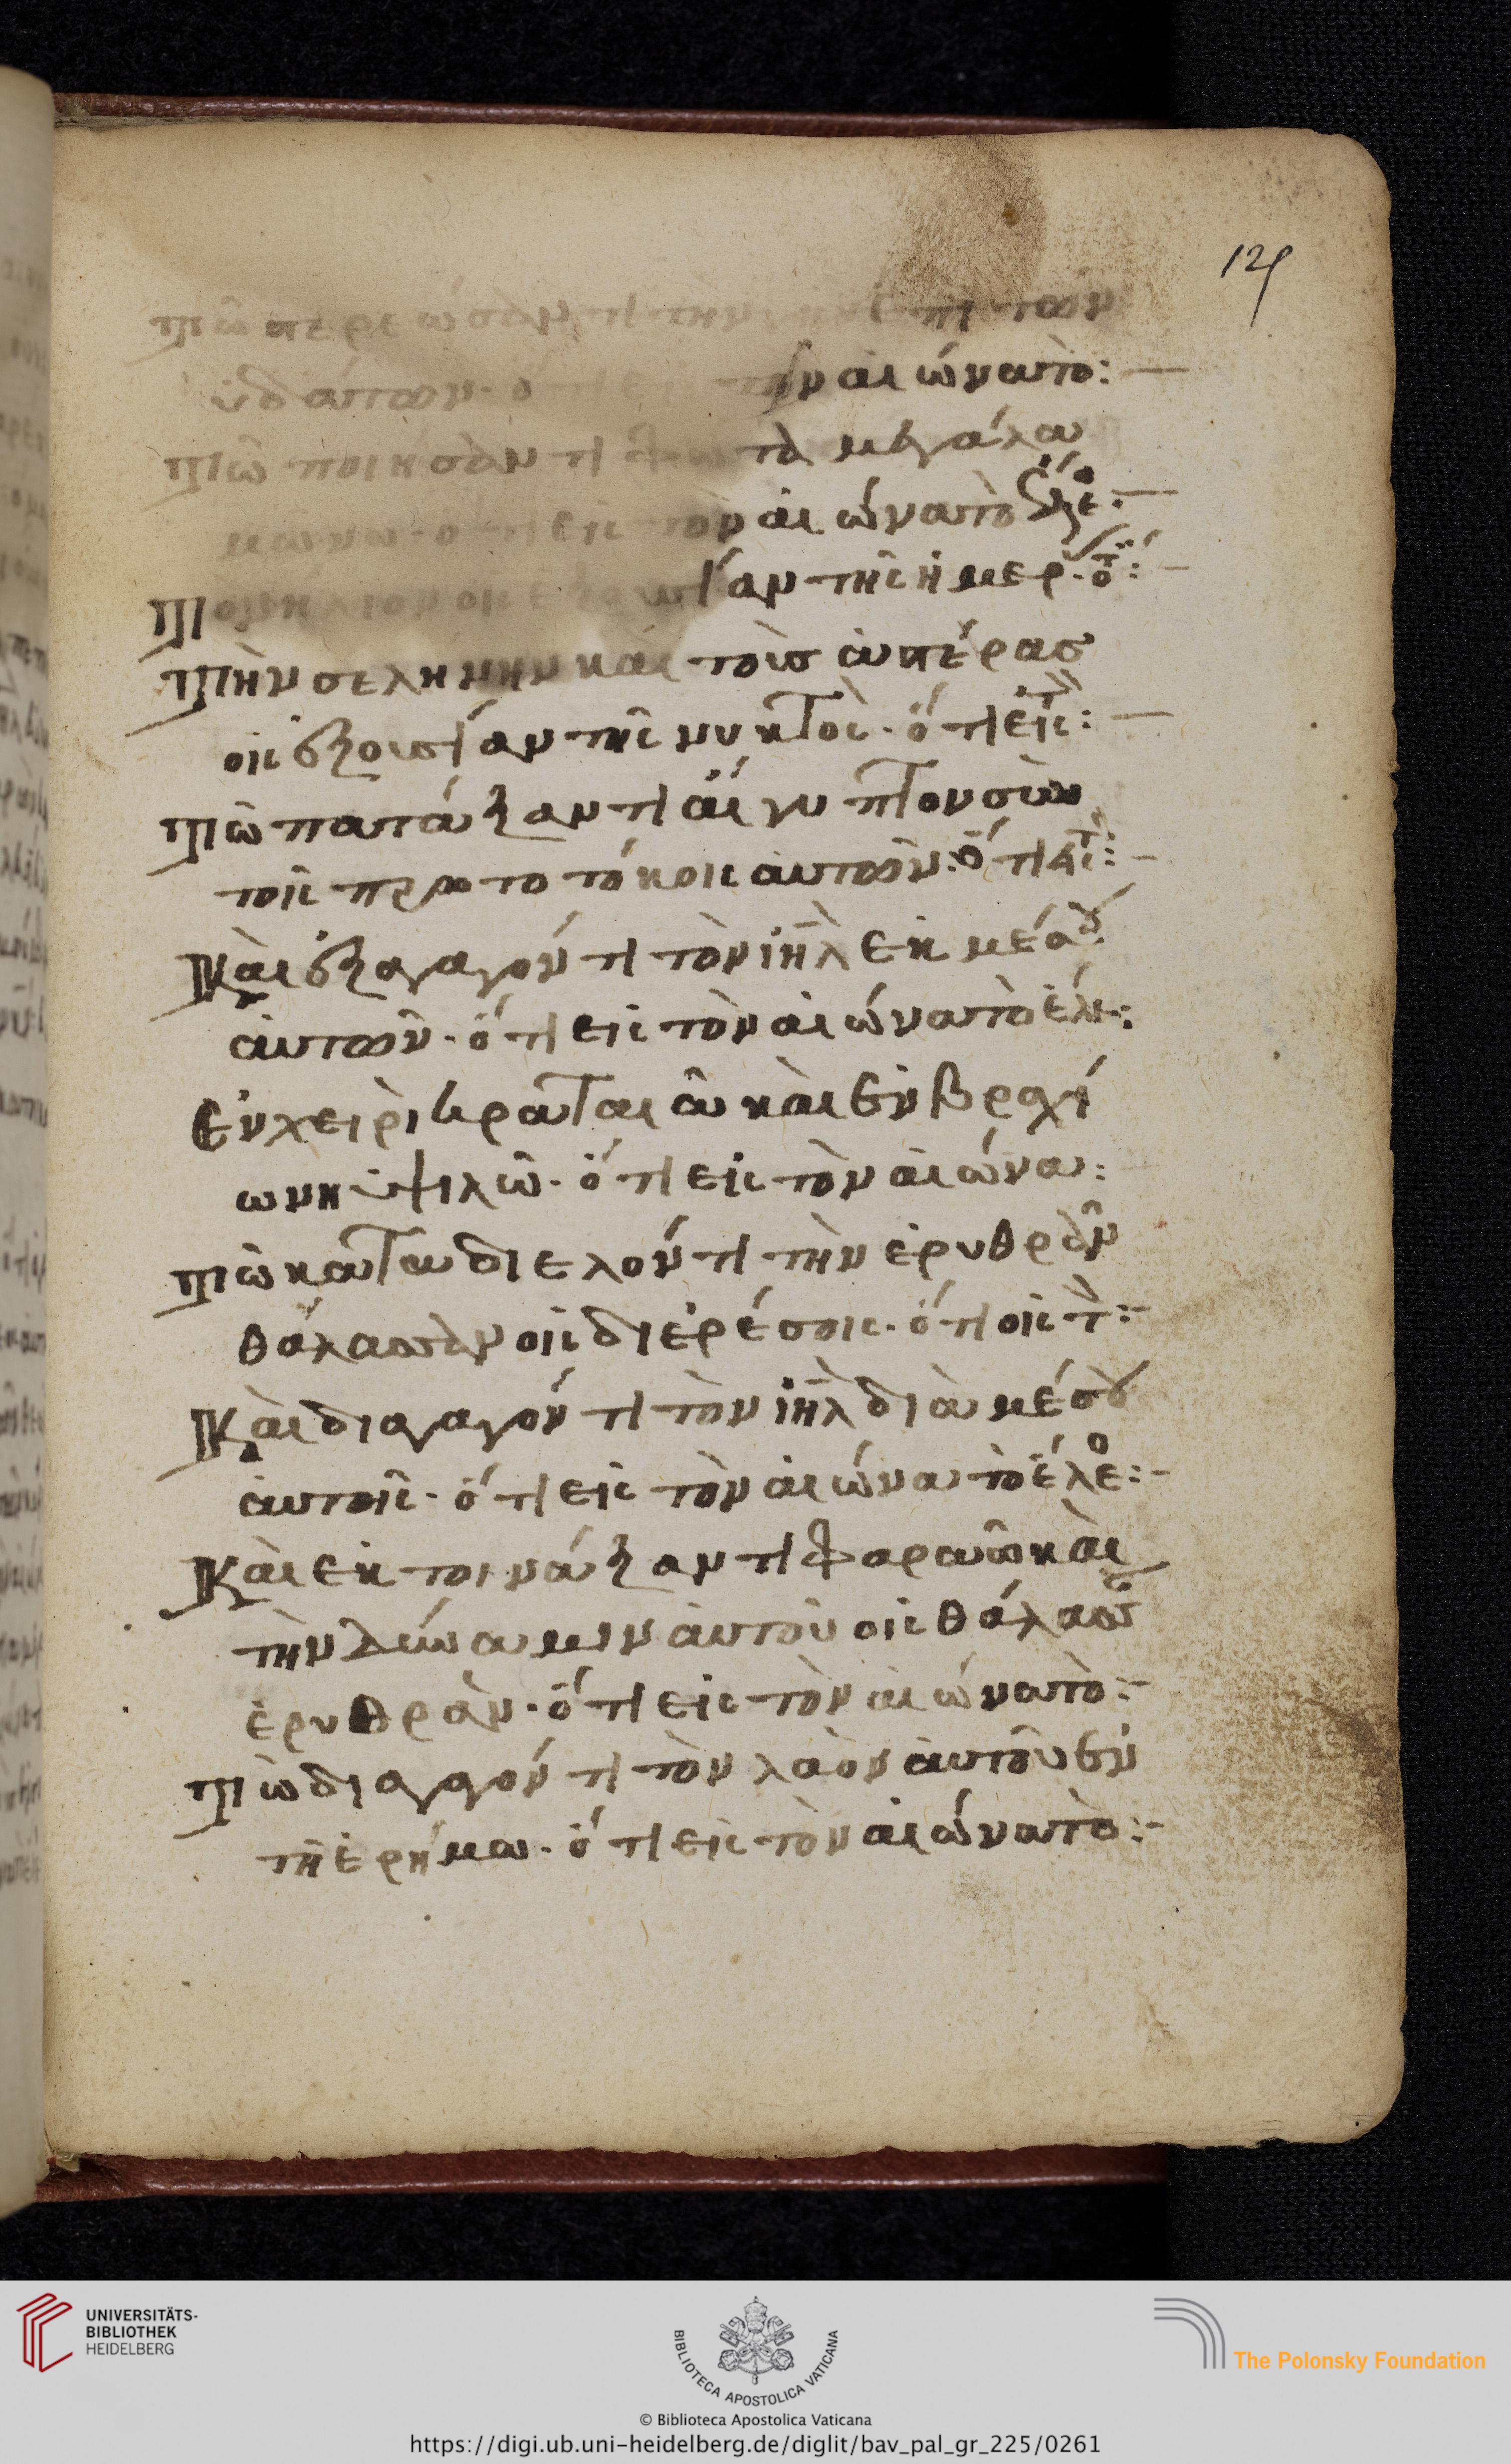 129
τῶ στερεώσαντι τὴν γῆν ἐπὶ τῶν
ὑδάτων· ὅτι εἰς τὸν αἰῶνα τὸ:—
τῶ ποιήσαντι φῶτα μεγάλα
μόνω· ὅτι εἰς τὸν αἰῶνα τὸ ἔλεο:—
τὸν ἥλιον εἰς ἐξουσίαν τῆς ἡμερ· ὅτ:—
τὴν σελήνην καὶ τοὺσ ἀστέρασ
εἰς ἐξουσίαν τῆς νυκτὸς· ὅτι εἰς τ:—
τῶ πατάξαντι αἴγυπτον σὺν
τοῖς πρωτοτόκοις αὐτῶν· ὅτι εἰς τ:—
Καὶ ἐξαγαγόντι τὸν ιηλ ἐκ μέσου
αὐτῶν· ὅτι εἰς τὸν αἰῶνα τὸ ἔλε:
Ἐν χειρὶ κραταιᾶ καὶ ἐν βραχί
ωνι ὑψιλῶ· ὅτι εἰς τὸν αἰῶνα:
τῶ καταδιελόντι τὴν ἐρυθρὰν
θάλασσαν εἰς διερέσεις· ὅτι εἰς τ:—
Καὶ διαγαγόντι τὸν ιηλ διὰ μέσου
αὐτῆς· ὅτι εἰς τὸν αἰῶνα τὸ ἔλεο:—
Καὶ ἐκτινάξαντι φαραῶ καὶ
τὴν δύναμιν αὐτοῦ εἰς θάλασσ
ἐρυθρὰν· ὅτι εἰς τὸν αἰῶνα τὸ:—
τῶ διαγαγόντι τὸν λαὸν αὐτοῦ ἐν
τῆ ἐρήμω· ὅτι εἰς τὸν αἰῶνα τὸ:—
UNIVERSITÄTS-
BIBLIOTHEK
HEIDELBERG
BIBLIOTECA APOSTOLICA VATICANA
The Polonsky Foundation
© Biblioteca Apostolica Vaticana
https://digi.ub.uni-heidelberg.de/diglit/bav_pal_gr_225/0261